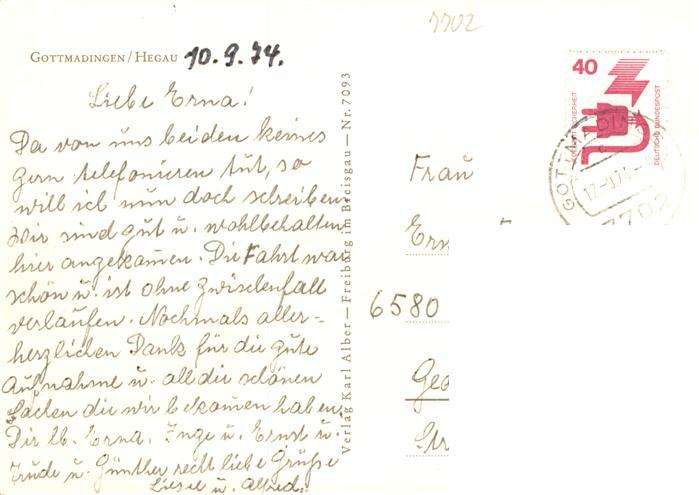 7702
GOTTMADINGEN/HEGAU 10.9.74.
Liebe Erna!
Da von uns beiden keines
gern telefonieren tut, so
will ich nun doch schreiben.
Wir sind gut u. wohlbehalten
hier angekommen. Die Fahrt war
schön u. ist ohne Zwischenfall
verlaufen. Nochmals aller-
herzlichen Dank für die gute
Aufnahme u. all die schönen
Sachen die wir bekommen haben.
Dir lb. Erna, Inge u. Ernst u.
Trude u. Günther recht liebe Grüße
Liesel u. Alfred.
Verlag Karl Alber – Freiburg im Breisgau – Nr. 7093
40
DEUTSCHE BUNDESPOST
7702
Frau
Ern
6580